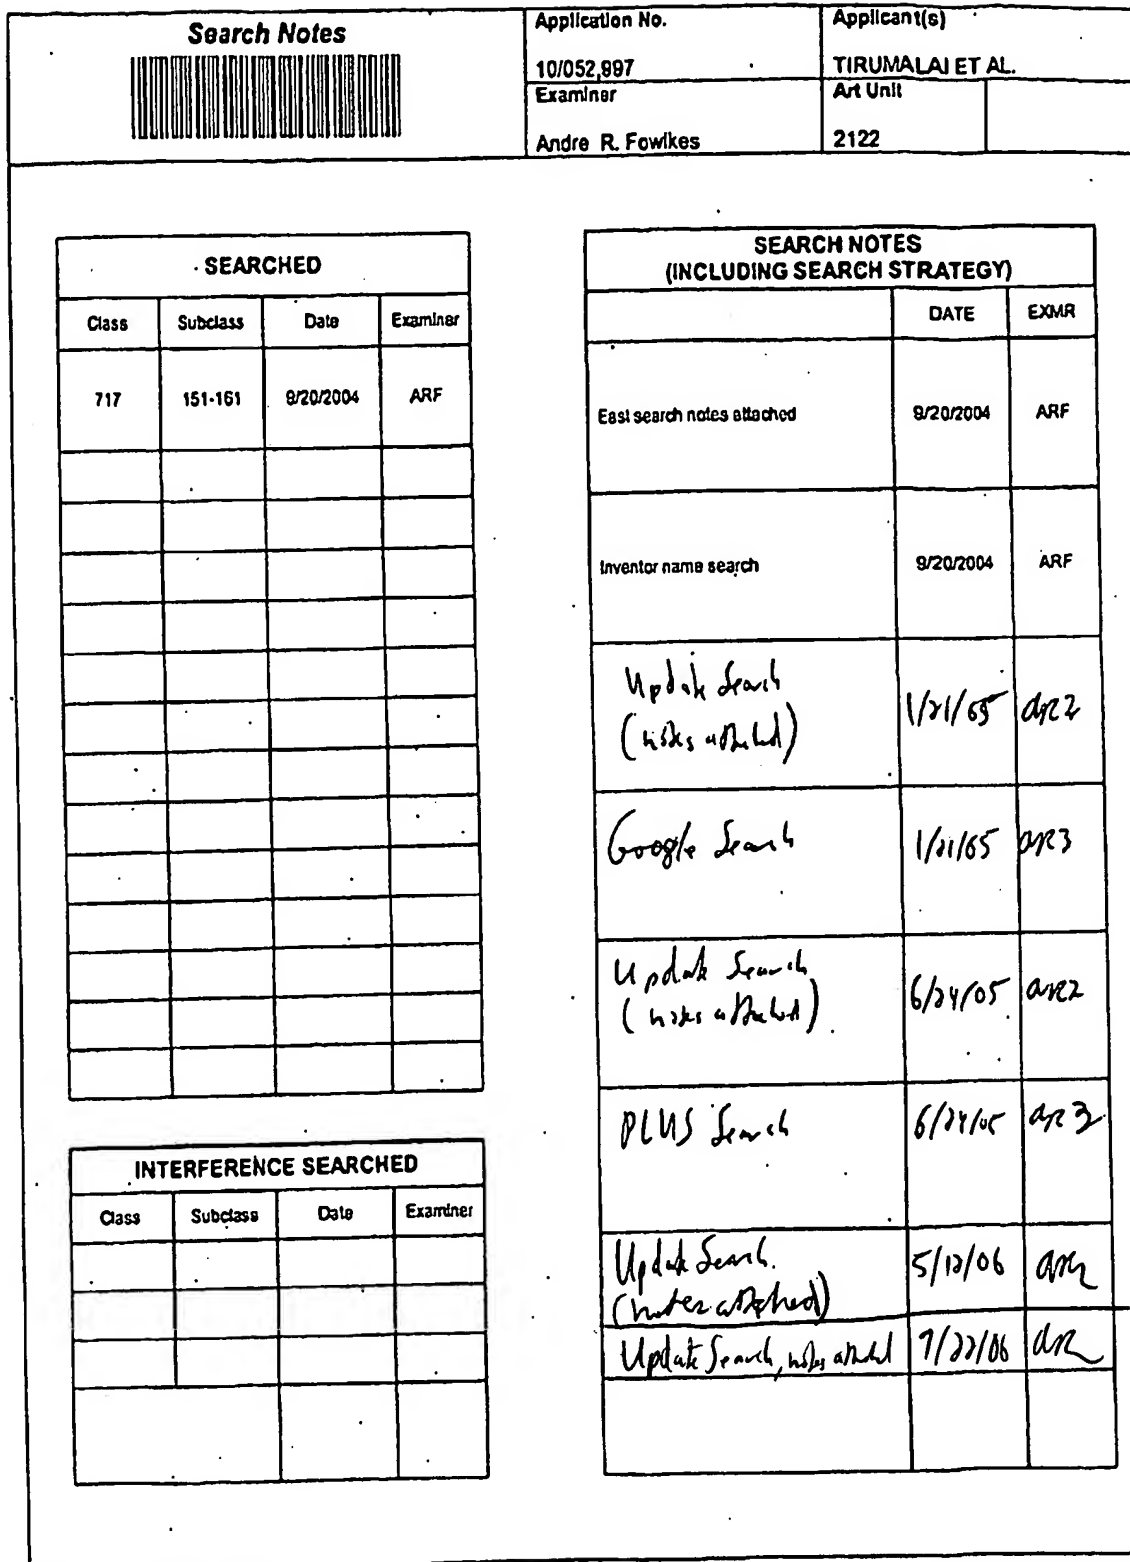 Search Notes
Application No.
Applicant(s)
10/052,997
TIRUMALAI ET AL.
Examiner
Art Unit
Andre R. Fowlkes
2122
SEARCHED
Class Subclass Date Examiner
717 151-161 9/20/2004 ARF
INTERFERENCE SEARCHED
Class Subclass Date Examiner
SEARCH NOTES
(INCLUDING SEARCH STRATEGY)
DATE EXMR
East search notes attached 9/20/2004 ARF
Inventor name search 9/20/2004 ARF
Update Search
(notes attached)
1/21/05
Google Search 1/21/05
Update Search
(notes attached)
6/24/05
PLUS Search 6/24/05
Update Search.
(notes attached)
5/12/06
Update Search, notes attached